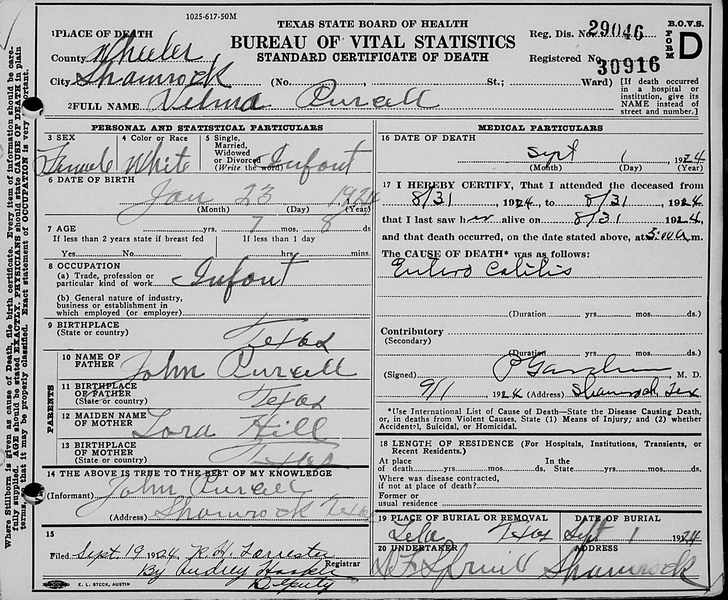 1025-617-50M
TEXAS STATE BOARD OF HEALTH
BUREAU OF VITAL STATISTICS
STANDARD CERTIFICATE OF DEATH
Reg. Dis. No. 29046
Registered No. 30916
B.O.V.S.
FORM D
1 PLACE OF DEATH
County Wheeler
City Shamrock (No. St.; Ward)
[If death occurred in a hospital or institution, give its NAME instead of street and number.]
2 FULL NAME Velma Purcell
Where Stillborn is given as cause of Death, file birth certificate. Every item of information should be carefully supplied. AGE should be stated EXACTLY. PHYSICIANS should state CAUSE OF DEATH in plain terms, so that it may be properly classified. Exact statement of OCCUPATION is very important.
PERSONAL AND STATISTICAL PARTICULARS
3 SEX Female
4 Color or Race White
5 Single, Married, Widowed or Divorced (Write the word) Infant
6 DATE OF BIRTH
Jan 23 1924
(Month) (Day) (Year)
7 AGE yrs. 7 mos. 8 ds.
If less than 2 years state if breast fed
Yes No
If less than 1 day
hrs mins
8 OCCUPATION
(a) Trade, profession or particular kind of work Infant
(b) General nature of industry, business or establishment in which employed (or employer)
9 BIRTHPLACE
(State or country) Texas
PARENTS
10 NAME OF FATHER John Purcell
11 BIRTHPLACE OF FATHER
(State or country) Texas
12 MAIDEN NAME OF MOTHER Lora Hill
13 BIRTHPLACE OF MOTHER
(State or country) Texas
14 THE ABOVE IS TRUE TO THE BEST OF MY KNOWLEDGE
(Informant) John Purcell
(Address) Shamrock Texas
15
Filed Sept. 19 1924 R. H. Forrester
Registrar
By Audrey
Deputy
E. L. STECK, AUSTIN
MEDICAL PARTICULARS
16 DATE OF DEATH
Sept 1 1924
(Month) (Day) (Year)
17 I HEREBY CERTIFY, That I attended the deceased from
8/31, 1924, to 8/31 1924,
that I last saw her alive on 8/31 1924,
and that death occurred, on the date stated above, at 5:00 a.m.
The CAUSE OF DEATH* was as follows:
Entero Colitis
(Duration yrs. mos. ds.)
Contributory
(Secondary)
(Duration yrs. mos. ds.)
(Signed) M. D.
9/1 1924 (Address) Shamrock, Tex
*Use International List of Cause of Death—State the Disease Causing Death, or, in deaths from Violent Causes, State (1) Means of Injury; and (2) whether Accidental, Suicidal, or Homicidal.
18 LENGTH OF RESIDENCE (For Hospitals, Institutions, Transients, or Recent Residents.)
At place of death yrs. mos. ds.
In the State yrs. mos. ds.
Where was disease contracted, if not at place of death?
Former or usual residence
19 PLACE OF BURIAL OR REMOVAL
Lela Texas
DATE OF BURIAL
Sept 1 1924
20 UNDERTAKER
ADDRESS
Shamrock